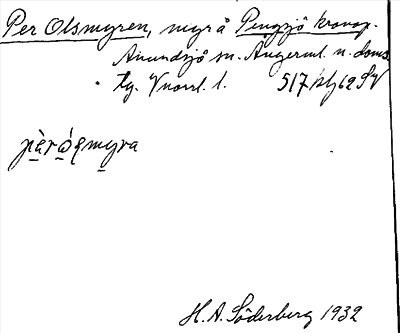 Per Olsmyren, myr å Pengsjö kronop.
Anundsjö sn. Ångerml. n. doms.
tg. Vnorrl. l. 517 klj 62 SV
pèrɷ́ʂmyra
H. A. Söderberg 1932